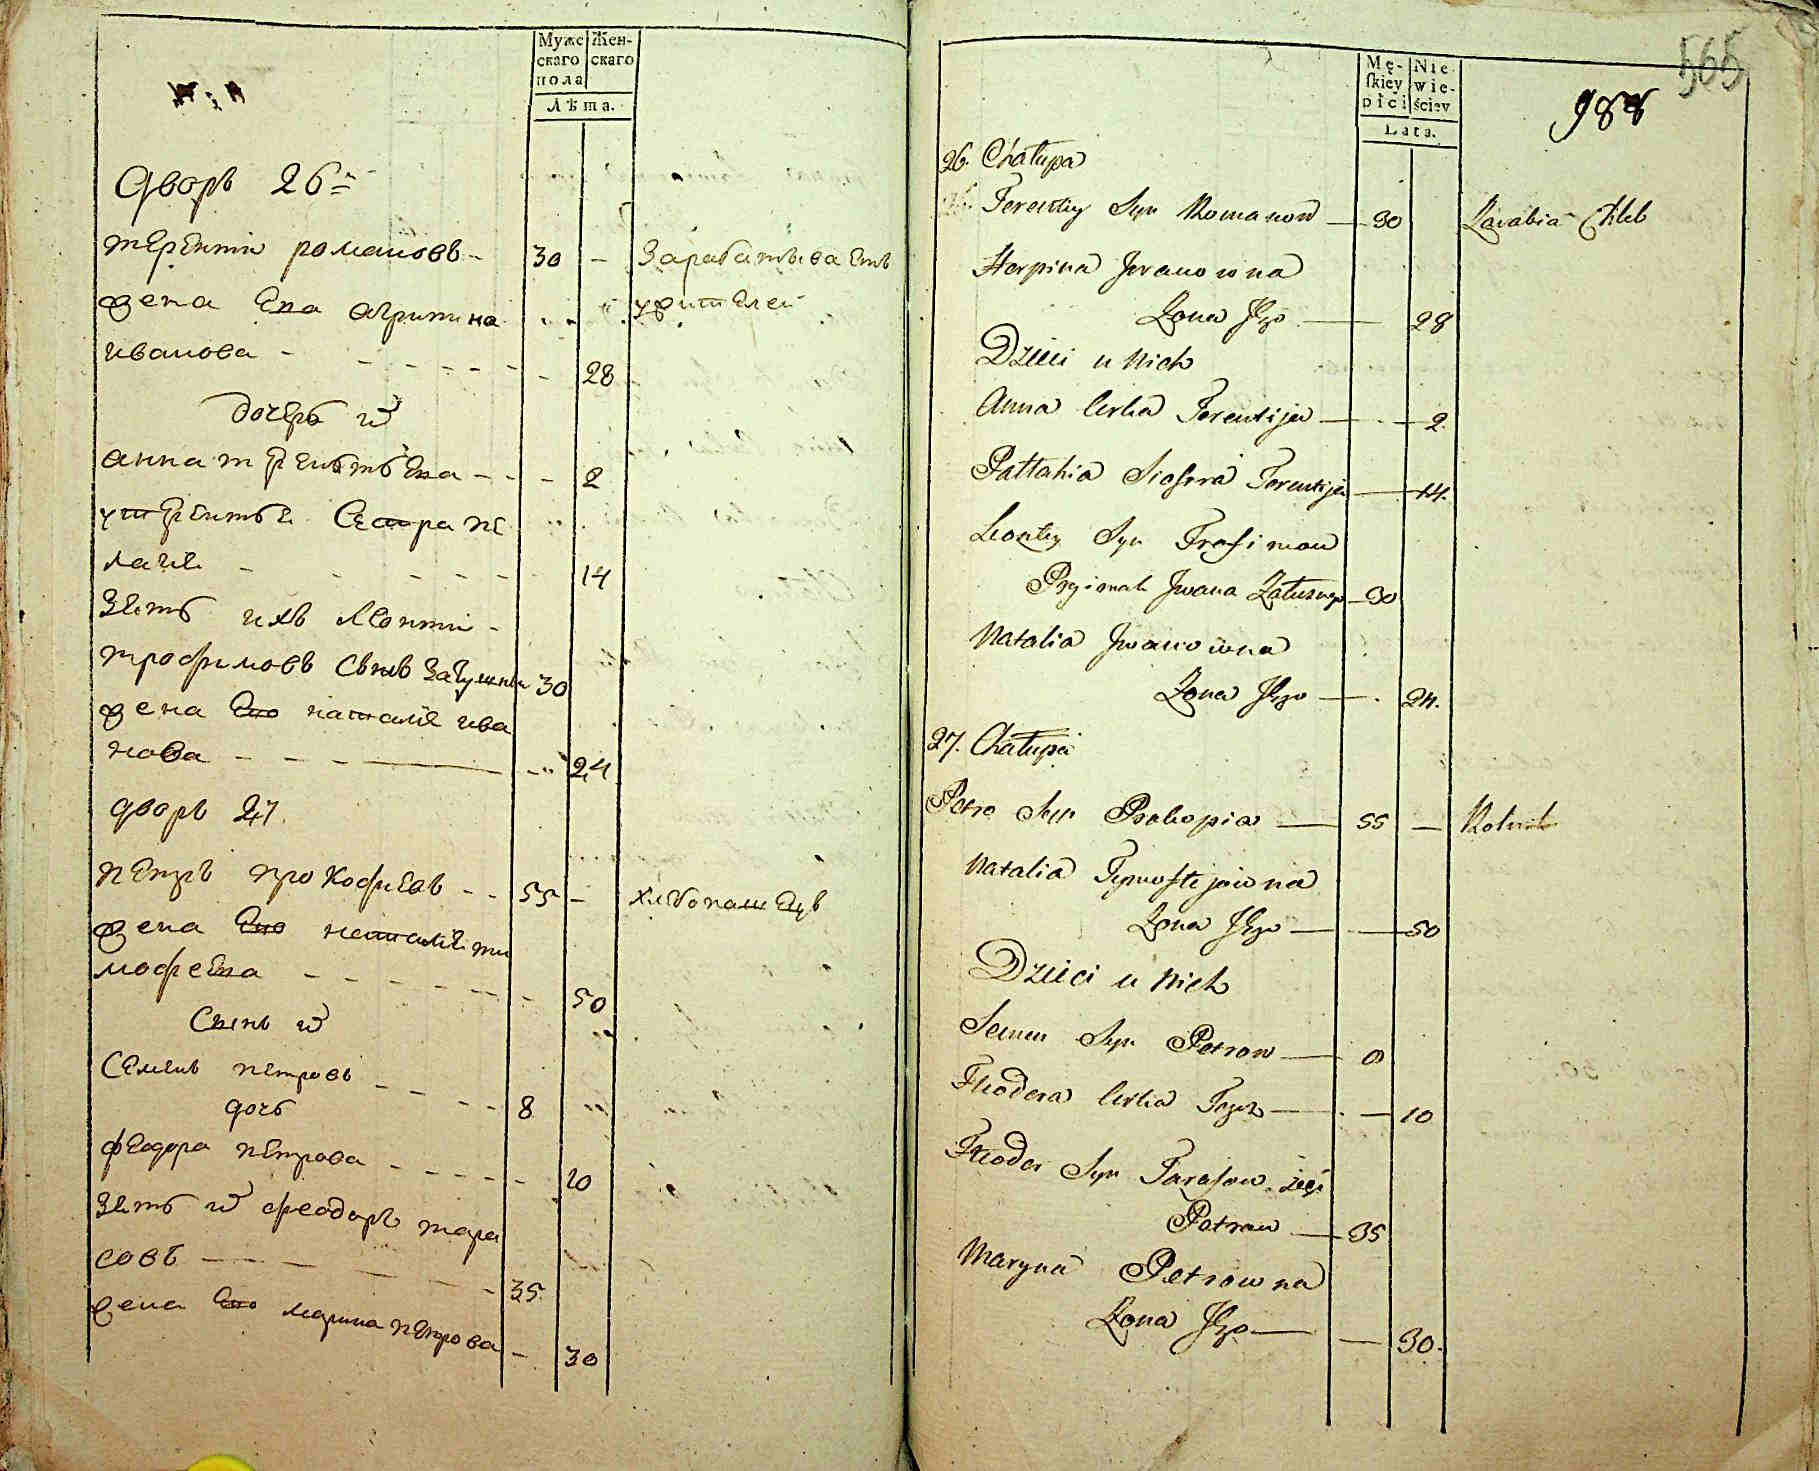 Муже
скаго
пола
Жен-
скаго
Лѣта.
дворъ 26
терентіи романовъ - 30 - Зарабатываетъ
жена Ево агрипина
ивановa - 28
дочеръ
анна терентьева - - - 2
у терентьѣ Сестра пе
лагие - 14
зять ихъ Леонтіи -
трофимовъ Сынъ 30
жена Ево наталіе ива
нова - 24
дворъ 27.
петръ прокофиевъ - - 55 - хлѣбопашецъ
жена Ево наталіе ти
мофеева - 50
Сынъ
Семенъ петровъ - 8
дочь
феодора петрова - 10
зять феодоръ тара
совъ - 35
жена Ево марина петрова - 30
565
988
Mę-
skiey
płci
Nie
wie-
ściey
Lata.
26. Chałupa
Terentiy Syn Romanow — 30 Zarabia Chleb
Harpina Jwanowna
Żona Jego — 28
Dzieci u Nich
Anna Corka Terentija — 2
Pałtahia Siostra Terentija — 14.
Leontiy Syn Trofimow
Jwana — 30
Natalia Jwanowna
Żona Jego — 24.
27. Chałupa
Petro Syn Prokopia — 55 — Rolnik
Natalia Tymofiejowna
Żona Jego — 50
Dzieci u Nich
Semen Syn Petrow — 8
Fheodora Corka Tegoż — 10
Fheodor Syn Tarasow zięć
Petrow — 35
Maryna Petrowna
Żona Jego — 30.